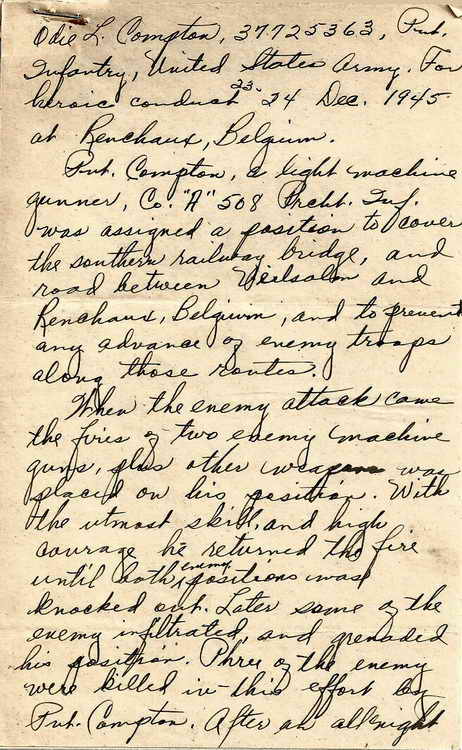 Odie L. Compton, 37725363, Pvt.
Infantry, United States Army. For
heroic conduct 23-24 Dec. 1945
at Renchaux, Belgium.
Pvt. Compton, a light machine
gunner, Co. "A" 508 Prcht. Inf.
was assigned a position to cover
the southern railway bridge, and
road between Vielsalm and
Renchaux, Belgium, and to prevent
any advance of enemy troops
along those routes.
When the enemy attack came
the fires of two enemy machine
guns, plus other weapons was
placed on his position. With
the utmost skill, and high
courage he returned the fire
until both enemy positions was
knocked out. Later some of the
enemy infiltrated, and grenaded
his position. Three of the enemy
were killed in this effort by
Pvt. Compton. After an all night